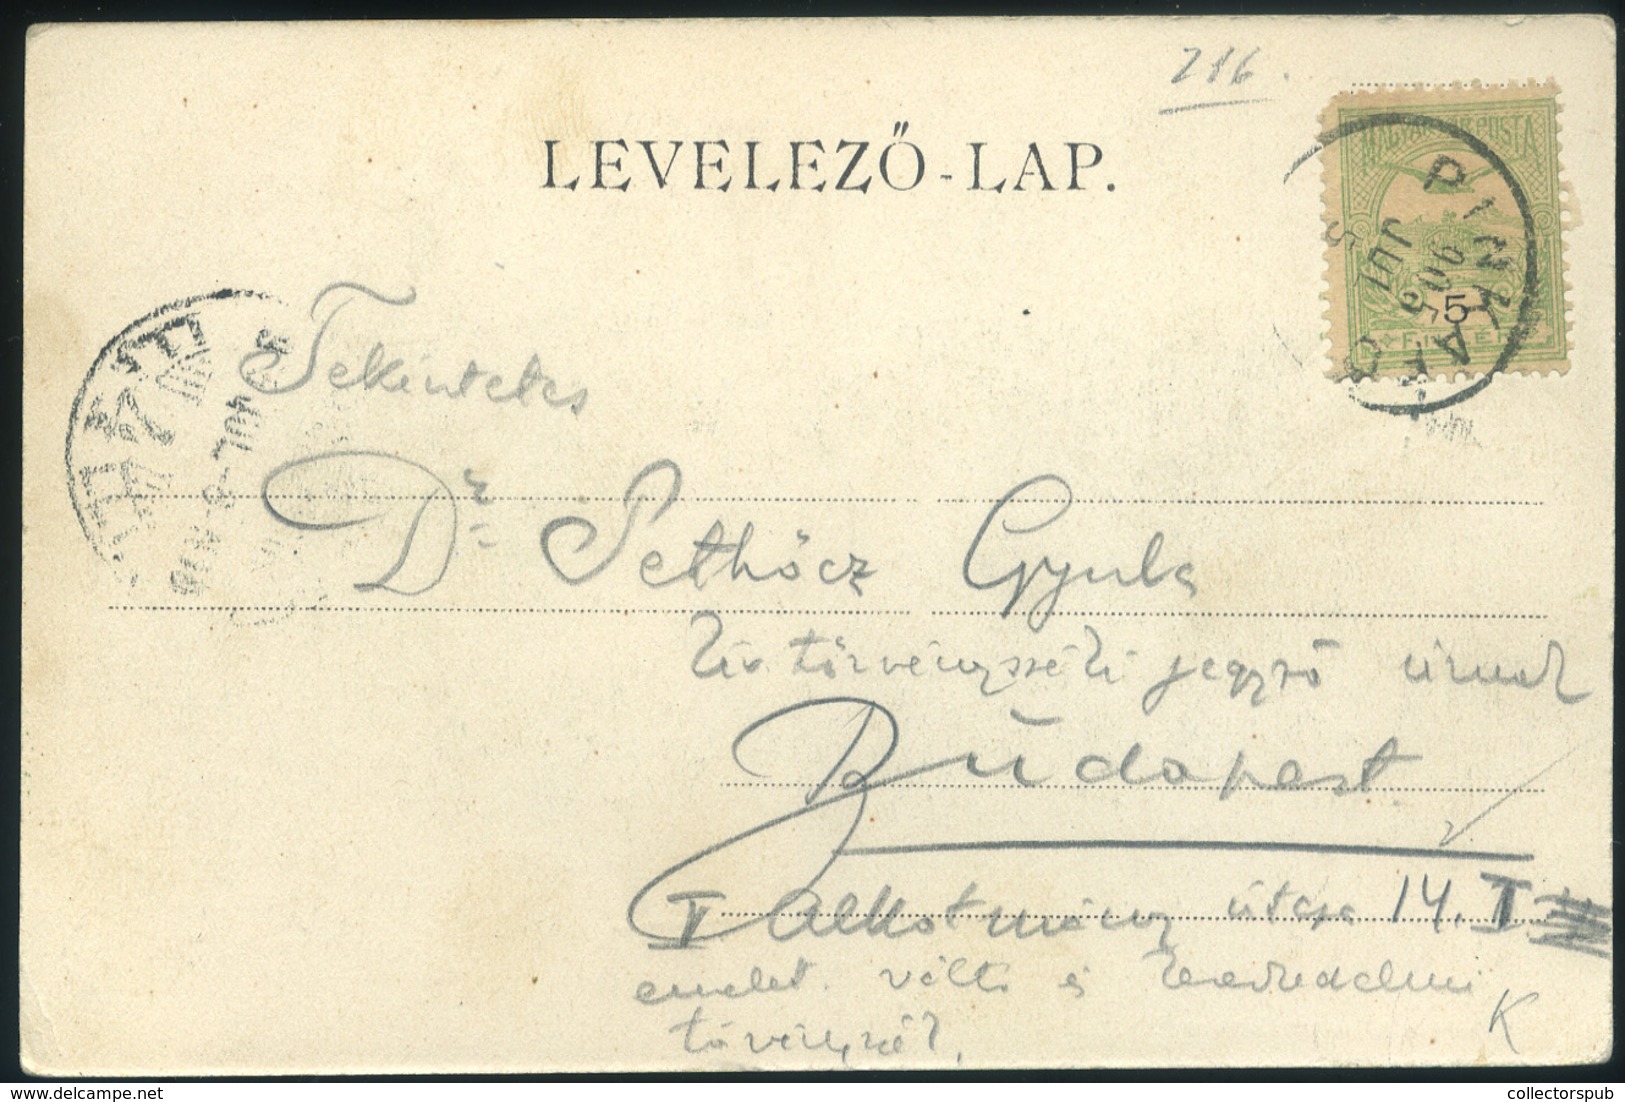 216.
LEVELEZŐ-LAP.
MAGYAR KIR. POSTA
PINKAFŐ
905 JUL
5
5
FILLÉR
Tekintetes
Dr Sethőcz Gyula
kir. törvényszéki jegyző úrnak
Budapest
V. Alkotmány útcza 14. I.
emelet. váltó és kereskedelmi
törvényszék.
K
collectorspub